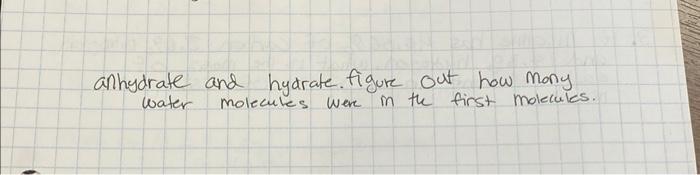 anhydrate and hydrate. figure out how many
water molecules were in the first molecules.